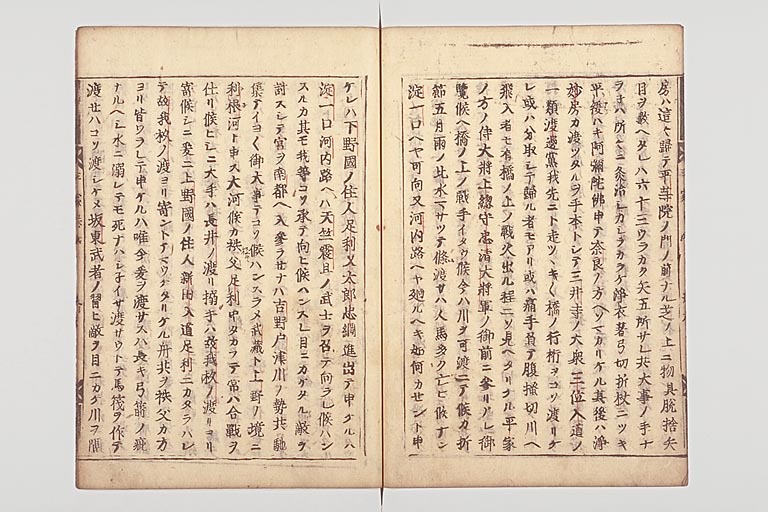 房ハ這々歸テ平等院ノ門ノ前ナル芝ノ上ニ物具脱捨矢
目ヲ數ヘタレハ六十三ウラカク矢五所サレ共大事ノ手ナ
ラネハ所々ニ灸治シカシラカラケ浄衣著弓切折杖ニツキ
平履ハキ阿彌陀佛申テ奈良ノ方ヘソマカリケル其後ハ浄
妙房カ渡ツタルヲ手本トシテ三井寺ノ大衆三位入道ノ
一類渡邊黨我先ニト走ツヽキ橋ノ行桁ヲコソ渡リケ
レ或ハ分取シテ歸ル者モアリ或ハ痛手負テ腹掻切川ヘ
飛入者モ有橋ノ上ノ戰火出ル程ニソ見ヘタリケル平家
ノ方ノ侍大將上總守忠清大將軍ノ御前ニ參リアレ御
覽候ヘ橋ノ上ノ戰手イタウ候今ハ川ヲ可渡ニテ候カ折
節五月雨ノ比水マサツテ候渡サハ人馬多ク亡ヒ候ナン
淀一口ヘヤ可向又河内路ヘヤ廻ルヘキ如何カセント申
ケレハ下野國ノ住人足利又太郎忠綱進出テ申ケルハ
淀一口河内路ヘハ天竺震旦ノ武士ヲ召テ向ラレ候ハン
スルカ其モ我等コソ承テ向ヒ候ハンスレ目ニカケタル敵ヲ
討スシテ宮ヲ南都ヘ入參ラセナハ吉野戸津川ノ勢共馳
集テイヨ〱御大事テコソ候ハンスラメ武藏ト上野ノ境ニ
利根河ト申ス大河候カ秩父足利中タカヲテ常ハ合戰ヲ
仕リ候ヒシニ大手ハ長井ノ渡リ搦手ハ故我杉ノ渡リヨリ
寄候シニ爰ニ上野國ノ住人新田入道足利ニカタラハレ
テ故我杉ノ渡ヨリ寄ントテマウケタリケル舟共ヲ秩父カ方
ヨリ皆ワラレテ申ケルハ唯今爰ヲ渡サスハ長キ弓箭ノ疵
ナルヘシ水ニ溺レテモ死ナハシ子イサ渡サウトテ馬筏ヲ作テ
渡セハコソ渡シケメ坂東武者ノ習ヒ敵ヲ目ニカケ川ヲ隔